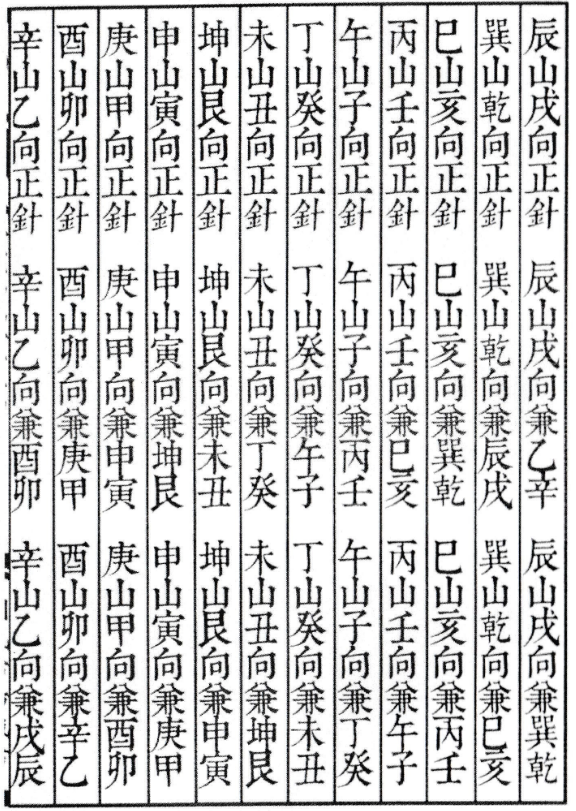 辰山戌向正針　辰山戌向兼乙辛　辰山戌向兼巽乾
巽山乾向正針　巽山乾向兼辰戌　巽山乾向兼巳亥
巳山亥向正針　巳山亥向兼巽乾　巳山亥向兼丙壬
丙山壬向正針　丙山壬向兼巳亥　丙山壬向兼午子
午山子向正針　午山子向兼丙壬　午山子向兼丁癸
丁山癸向正針　丁山癸向兼午子　丁山癸向兼未丑
未山丑向正針　未山丑向兼丁癸　未山丑向兼坤艮
坤山艮向正針　坤山艮向兼未丑　坤山艮向兼申寅
申山寅向正針　申山寅向兼坤艮　申山寅向兼庚甲
庚山甲向正針　庚山甲向兼申寅　庚山甲向兼酉卯
酉山卯向正針　酉山卯向兼庚甲　酉山卯向兼辛乙
辛山乙向正針　辛山乙向兼酉卯　辛山乙向兼戌辰